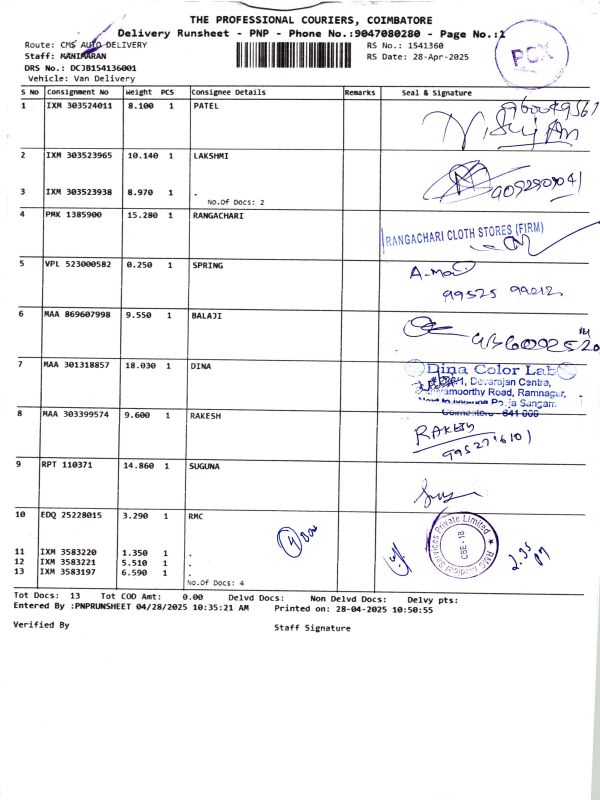 THE PROFESSIONAL COURIERS, COIMBATORE
Delivery Runsheet - PNP - Phone No.:9047080280 - Page No.:1
Route: CMS AUTO DELIVERY RS No.: 1541360
Staff: MANIMARAN RS Date: 28-Apr-2025
DRS No.: DCJB154136001
Vehicle: Van Delivery
PCX
S No Consignment No Weight PCS Consignee Details Remarks Seal & Signature
1 IXM 303524011 8.100 1 PATEL
2 IXM 303523965 10.140 1 LAKSHMI
3 IXM 303523938 8.970 1 .
No.Of Docs: 2
4 PMK 1385900 15.280 1 RANGACHARI
RANGACHARI CLOTH STORES (FIRM)
5 VPL 523000582 0.250 1 SPRING
99525 99212
6 MAA 869607998 9.550 1 BALAJI
7 MAA 301318857 18.030 1 DINA
Dina Color Lab
Devarajan Centre,
Road, Ramnagar,
Coimbatore - 641 009
8 MAA 303399574 9.600 1 RAKESH
RAKESH
9 RPT 110371 14.860 1 SUGUNA
10 EDQ 25228015 3.290 1 RMC
4 Box
CBE-18
2.35 PM
11 IXM 3583220 1.350 1 .
12 IXM 3583221 5.510 1 .
13 IXM 3583197 6.590 1 .
No.Of Docs: 4
Tot Docs: 13 Tot COD Amt: 0.00 Delvd Docs: Non Delvd Docs: Delvy pts:
Entered By :PNPRUNSHEET 04/28/2025 10:35:21 AM Printed on: 28-04-2025 10:50:55
Verified By Staff Signature